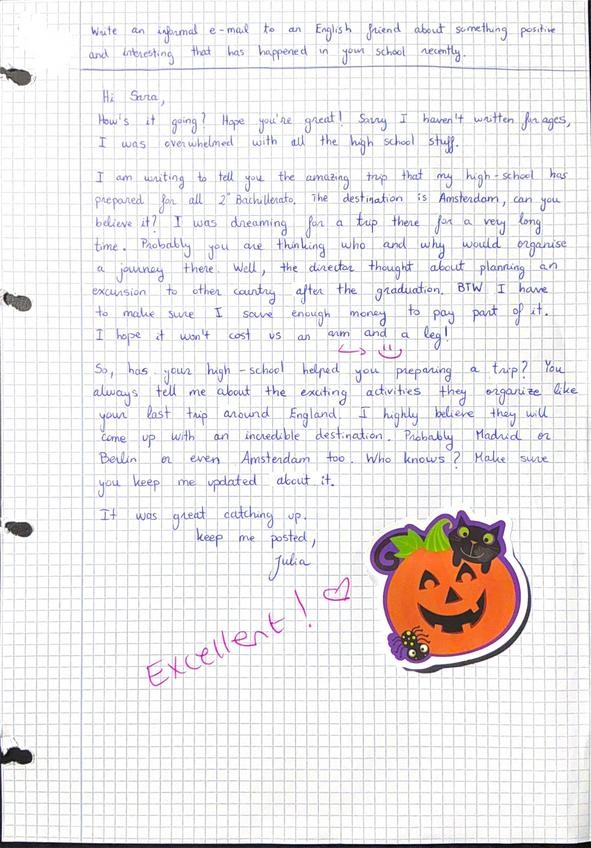 Write an informal e-mail to an English friend about something positive
and interesting that has happened in your school recently.
Hi Sara,
How's it going? Hope you're great! Sorry I haven't written for ages,
I was overwhelmed with all the high school stuff.
I am writing to tell you the amazing trip that my high-school has
prepared for all 2º Bachillerato. The destination is Amsterdam, can you
believe it? I was dreaming for a trip there for a very long
time. Probably you are thinking who and why would organise
a journey there. Well, the director thought about planning an
excursion to other country after the graduation. BTW I have
to make sure I save enough money to pay part of it.
I hope it won't cost us an arm and a leg!
So, has your high-school helped you preparing a trip? You
always tell me about the exciting activities they organize like
your last trip around England. I highly believe they will
come up with an incredible destination. Probably Madrid or
Berlin or even Amsterdam too. Who knows? Make sure
you keep me updated about it.
It was great catching up.
keep me posted,
Julia
Excellent!